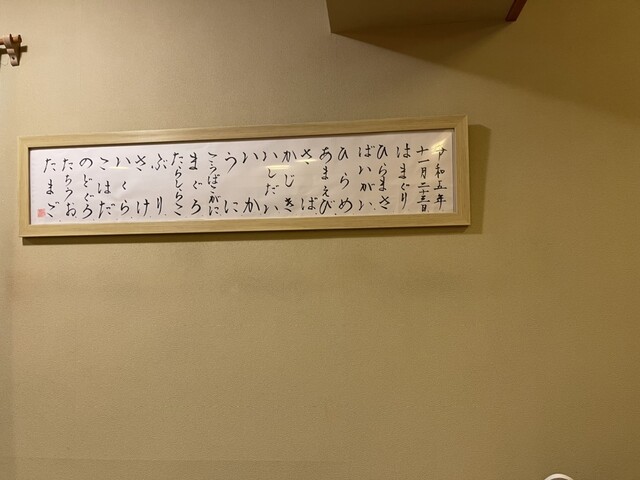 令和五年
十一月二十三日
はまぐり
ひらまさ
ばいがい
ひらめ
あまえび
さば
かじき
いしだい
いか
うに
こうばこがに
まぐろ
たらしらこ
ぶり
さけ
いくら
こはだ
のどぐろ
たちうお
たまご